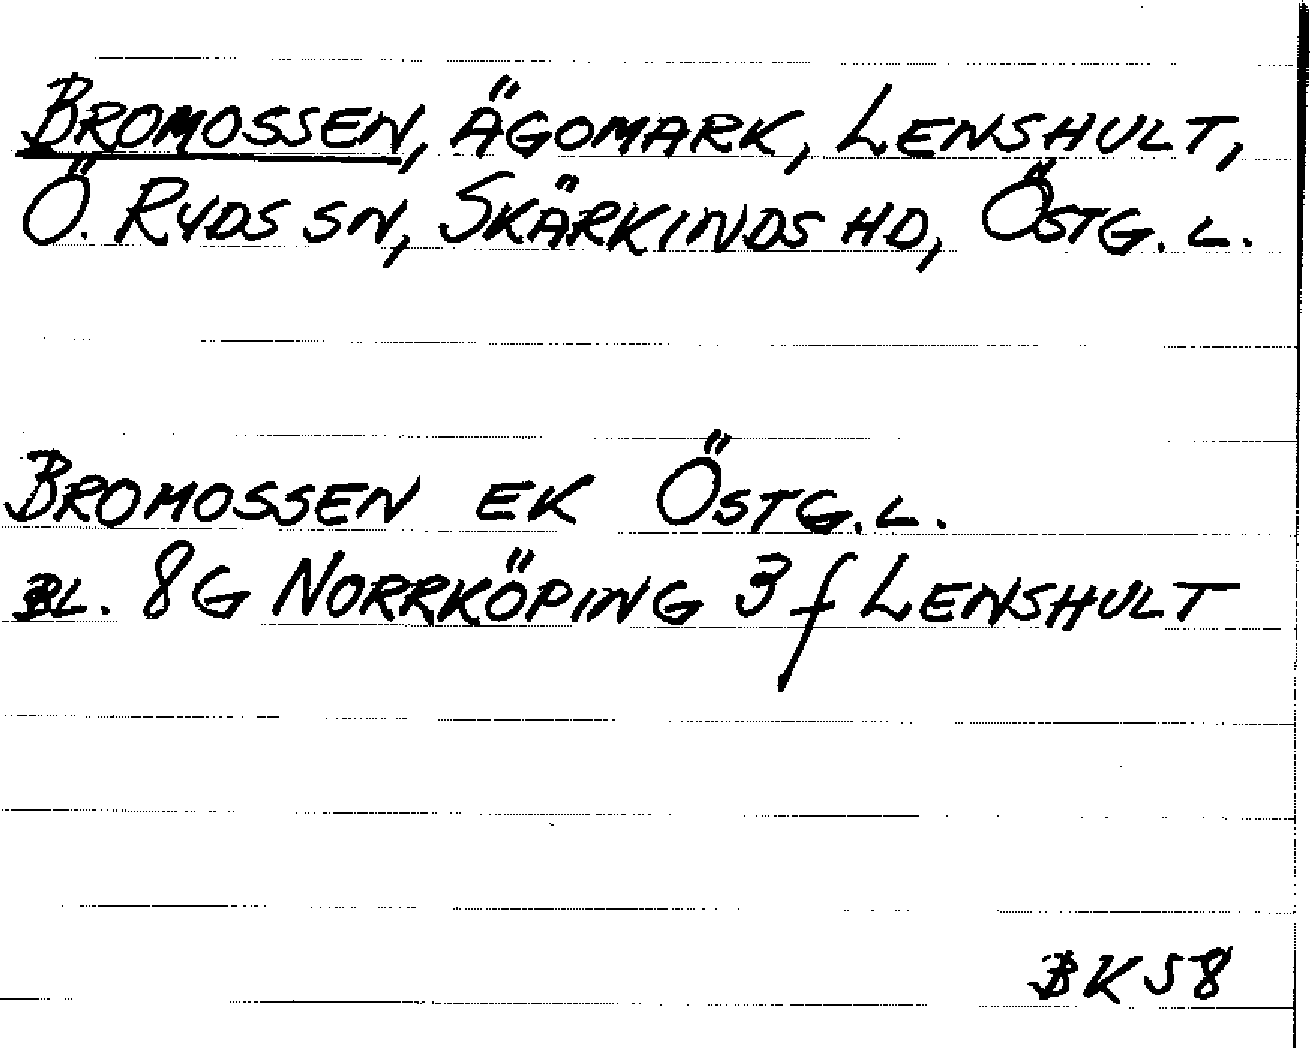 BROMOSSEN, ÄGOMARK, LENSHULT,
Ö. RYDS SN, SKÄRKINDS HD, ÖSTG. L.
BROMOSSEN EK ÖSTG. L.
BL. 8G NORRKÖPING 3 f LENSHULT
BK 58